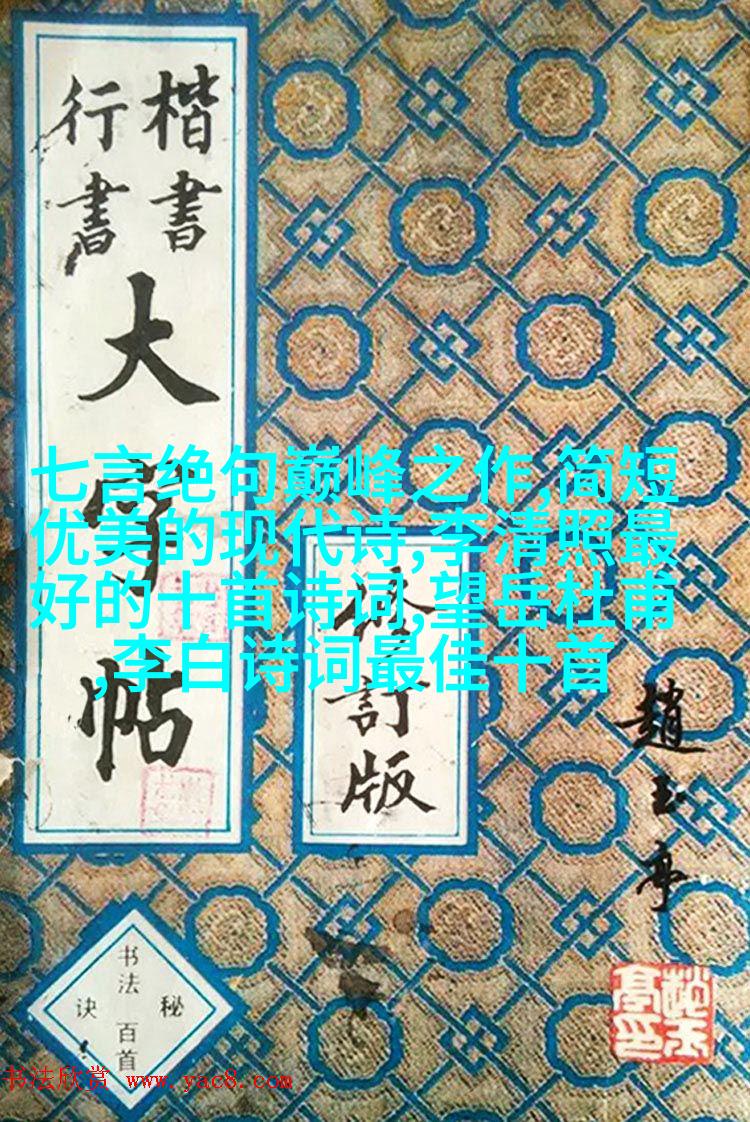 楷書
行書
大字帖
修訂版
七言绝句巅峰之作,简短
优美的现代诗,李清照最
好的十首诗词,望岳杜甫
,李白诗词最佳十首
趙玉亭
书法百首
秘诀
书法欣赏 www.yac8.com